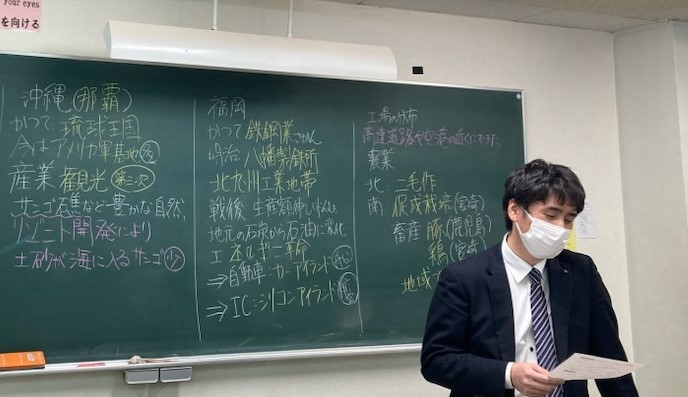 your eyes
を向ける
沖縄(那覇)
かつて 琉球王国
今は アメリカ軍基地 多
産業 観光 第三次
サンゴ礁など豊かな自然
リゾート開発により
土砂が海に入るサンゴ 少
福岡
かつて 鉄鋼業さかん
明治 八幡製鉄所
北九州工業地帯
戦後 生産額伸び
地元の石炭から石油に変化
エネルギー革命
⇒自動車:カーアイランド
⇒IC:シリコンアイランド
工場の分布
高速道路や空港の近くにできた
農業
北:二毛作
南 促成栽培(宮崎)
畜産 豚(鹿児島)
鶏(宮崎)
地域